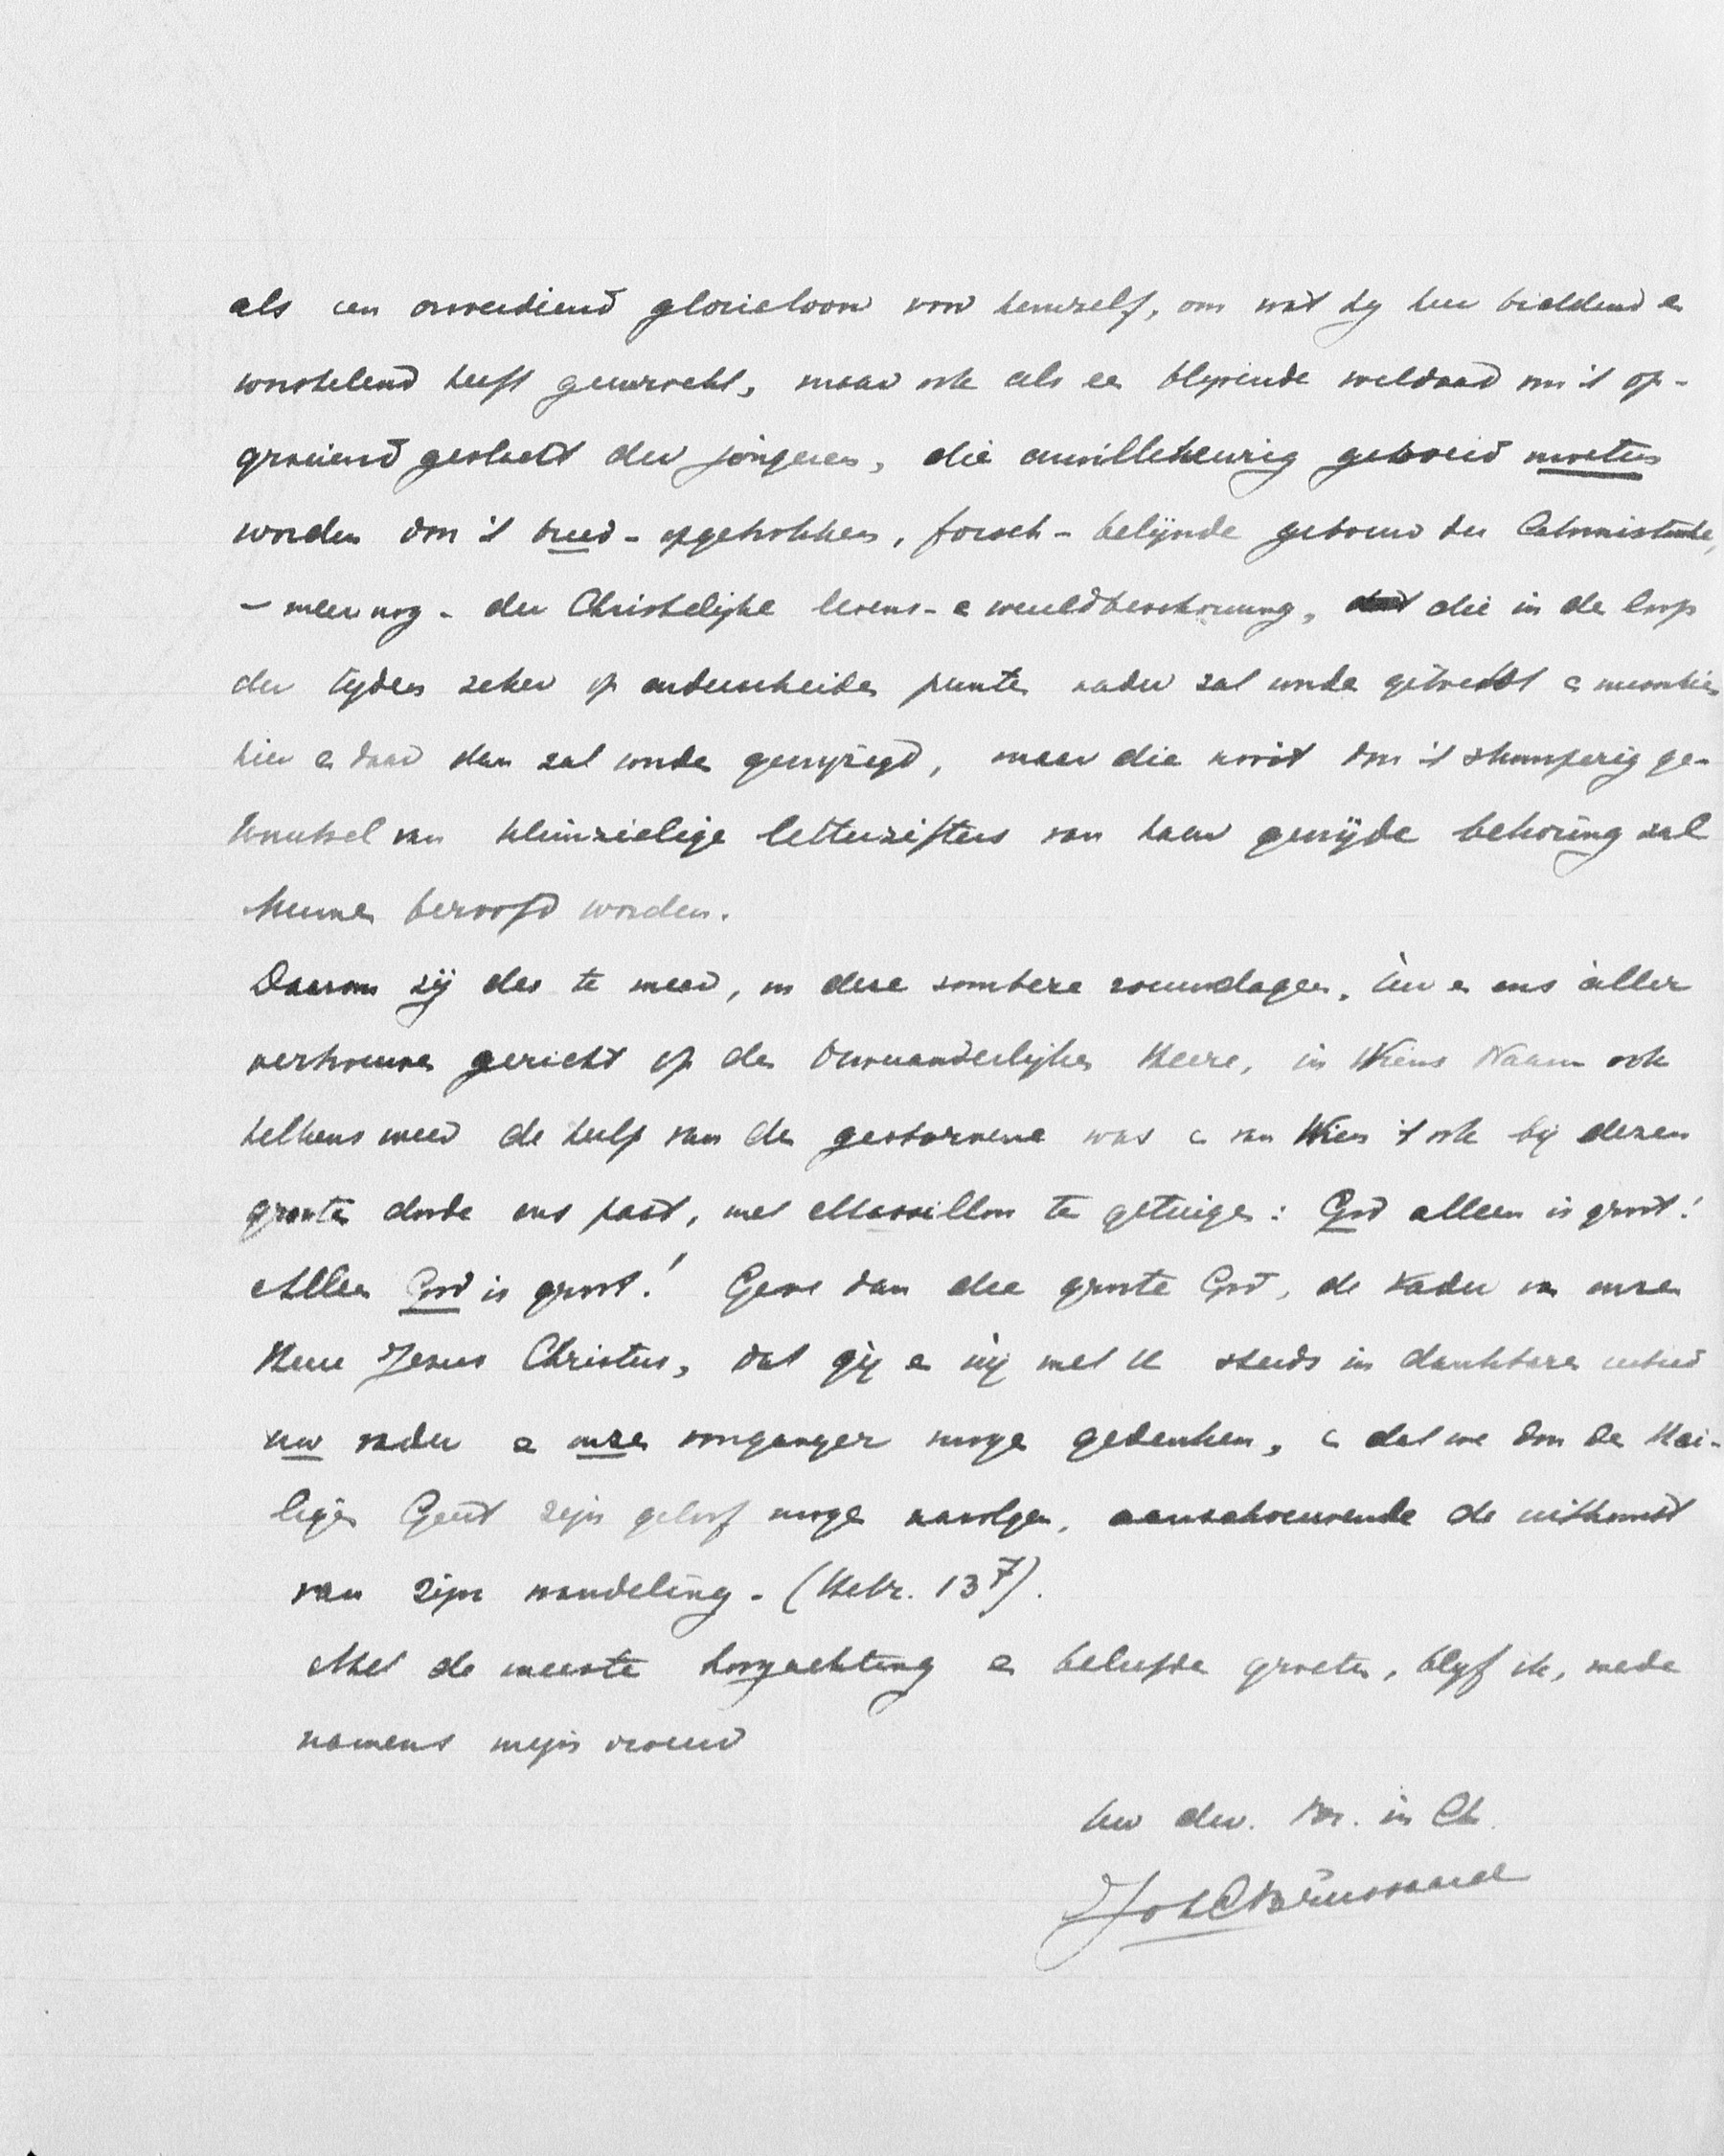 als een onverdiend glorieloon voor hemzelf, om wat hij hier biddend en
worstelend heeft gewrocht, maar ook als een blijvende weldaad voor 't op-
groeiend geslacht der jongeren, die onwillekeurig geboeid moeten
worden door 't breed-opgetrokken, forsch-belijnde gebouw der Calvinistische,
- meer nog - der Christelijke levens- en wereldbeschouwing, die in de loop
der tijden zeker op onderscheiden punten nader zal worden getoetst en misschien
hier en daar dan zal worden gewijzigd, maar die nooit door 't stumperig ge-
knutsel van kleinzielige letterzifters van haar gewijde bekoring zal
kunnen beroofd worden.
Daarom zij des te meer, in deze sombere rouwdagen, Uw en ons aller
vertrouwen gericht op den Onveranderlijken Heere, in Wiens Naam ook
telkens weer de hulp van den gestorvene was en van Wien 't ook bij dezen
grooten doode ons past, met Massillon te getuigen: God alleen is groot!
Alleen God is groot! Geve dan die groote God, de Vader van onzen
Heere Jezus Christus, dat gij en wij met U steeds in dankbaren eerbied
uw vader en onzen voorganger mogen gedenken, en dat we door den Hei-
ligen Geest zijn geloof mogen navolgen, aanschouwende de uitkomst
van zijn wandeling. (Hebr. 13 7).
Met de meeste hoogachting en beleefde groeten, blijf ik, mede
namens mijn vrouw
Uw dw. br. in Ch.
Joh C Brussaard